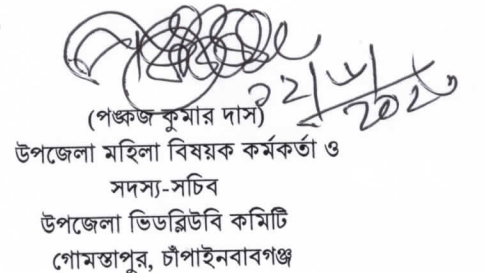 (পঙ্কজ কুমার দাস)
উপজেলা মহিলা বিষয়ক কর্মকর্তা ও
সদস্য-সচিব
উপজেলা ভিডব্লিউবি কমিটি
গোমস্তাপুর, চাঁপাইনবাবগঞ্জ